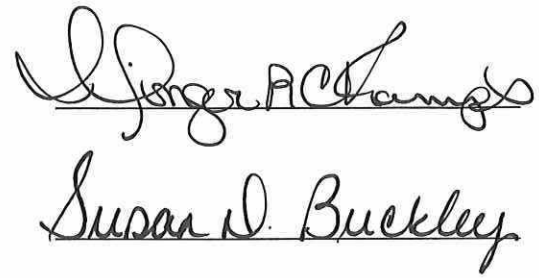 Ginger R Champ
Susan D. Buckley